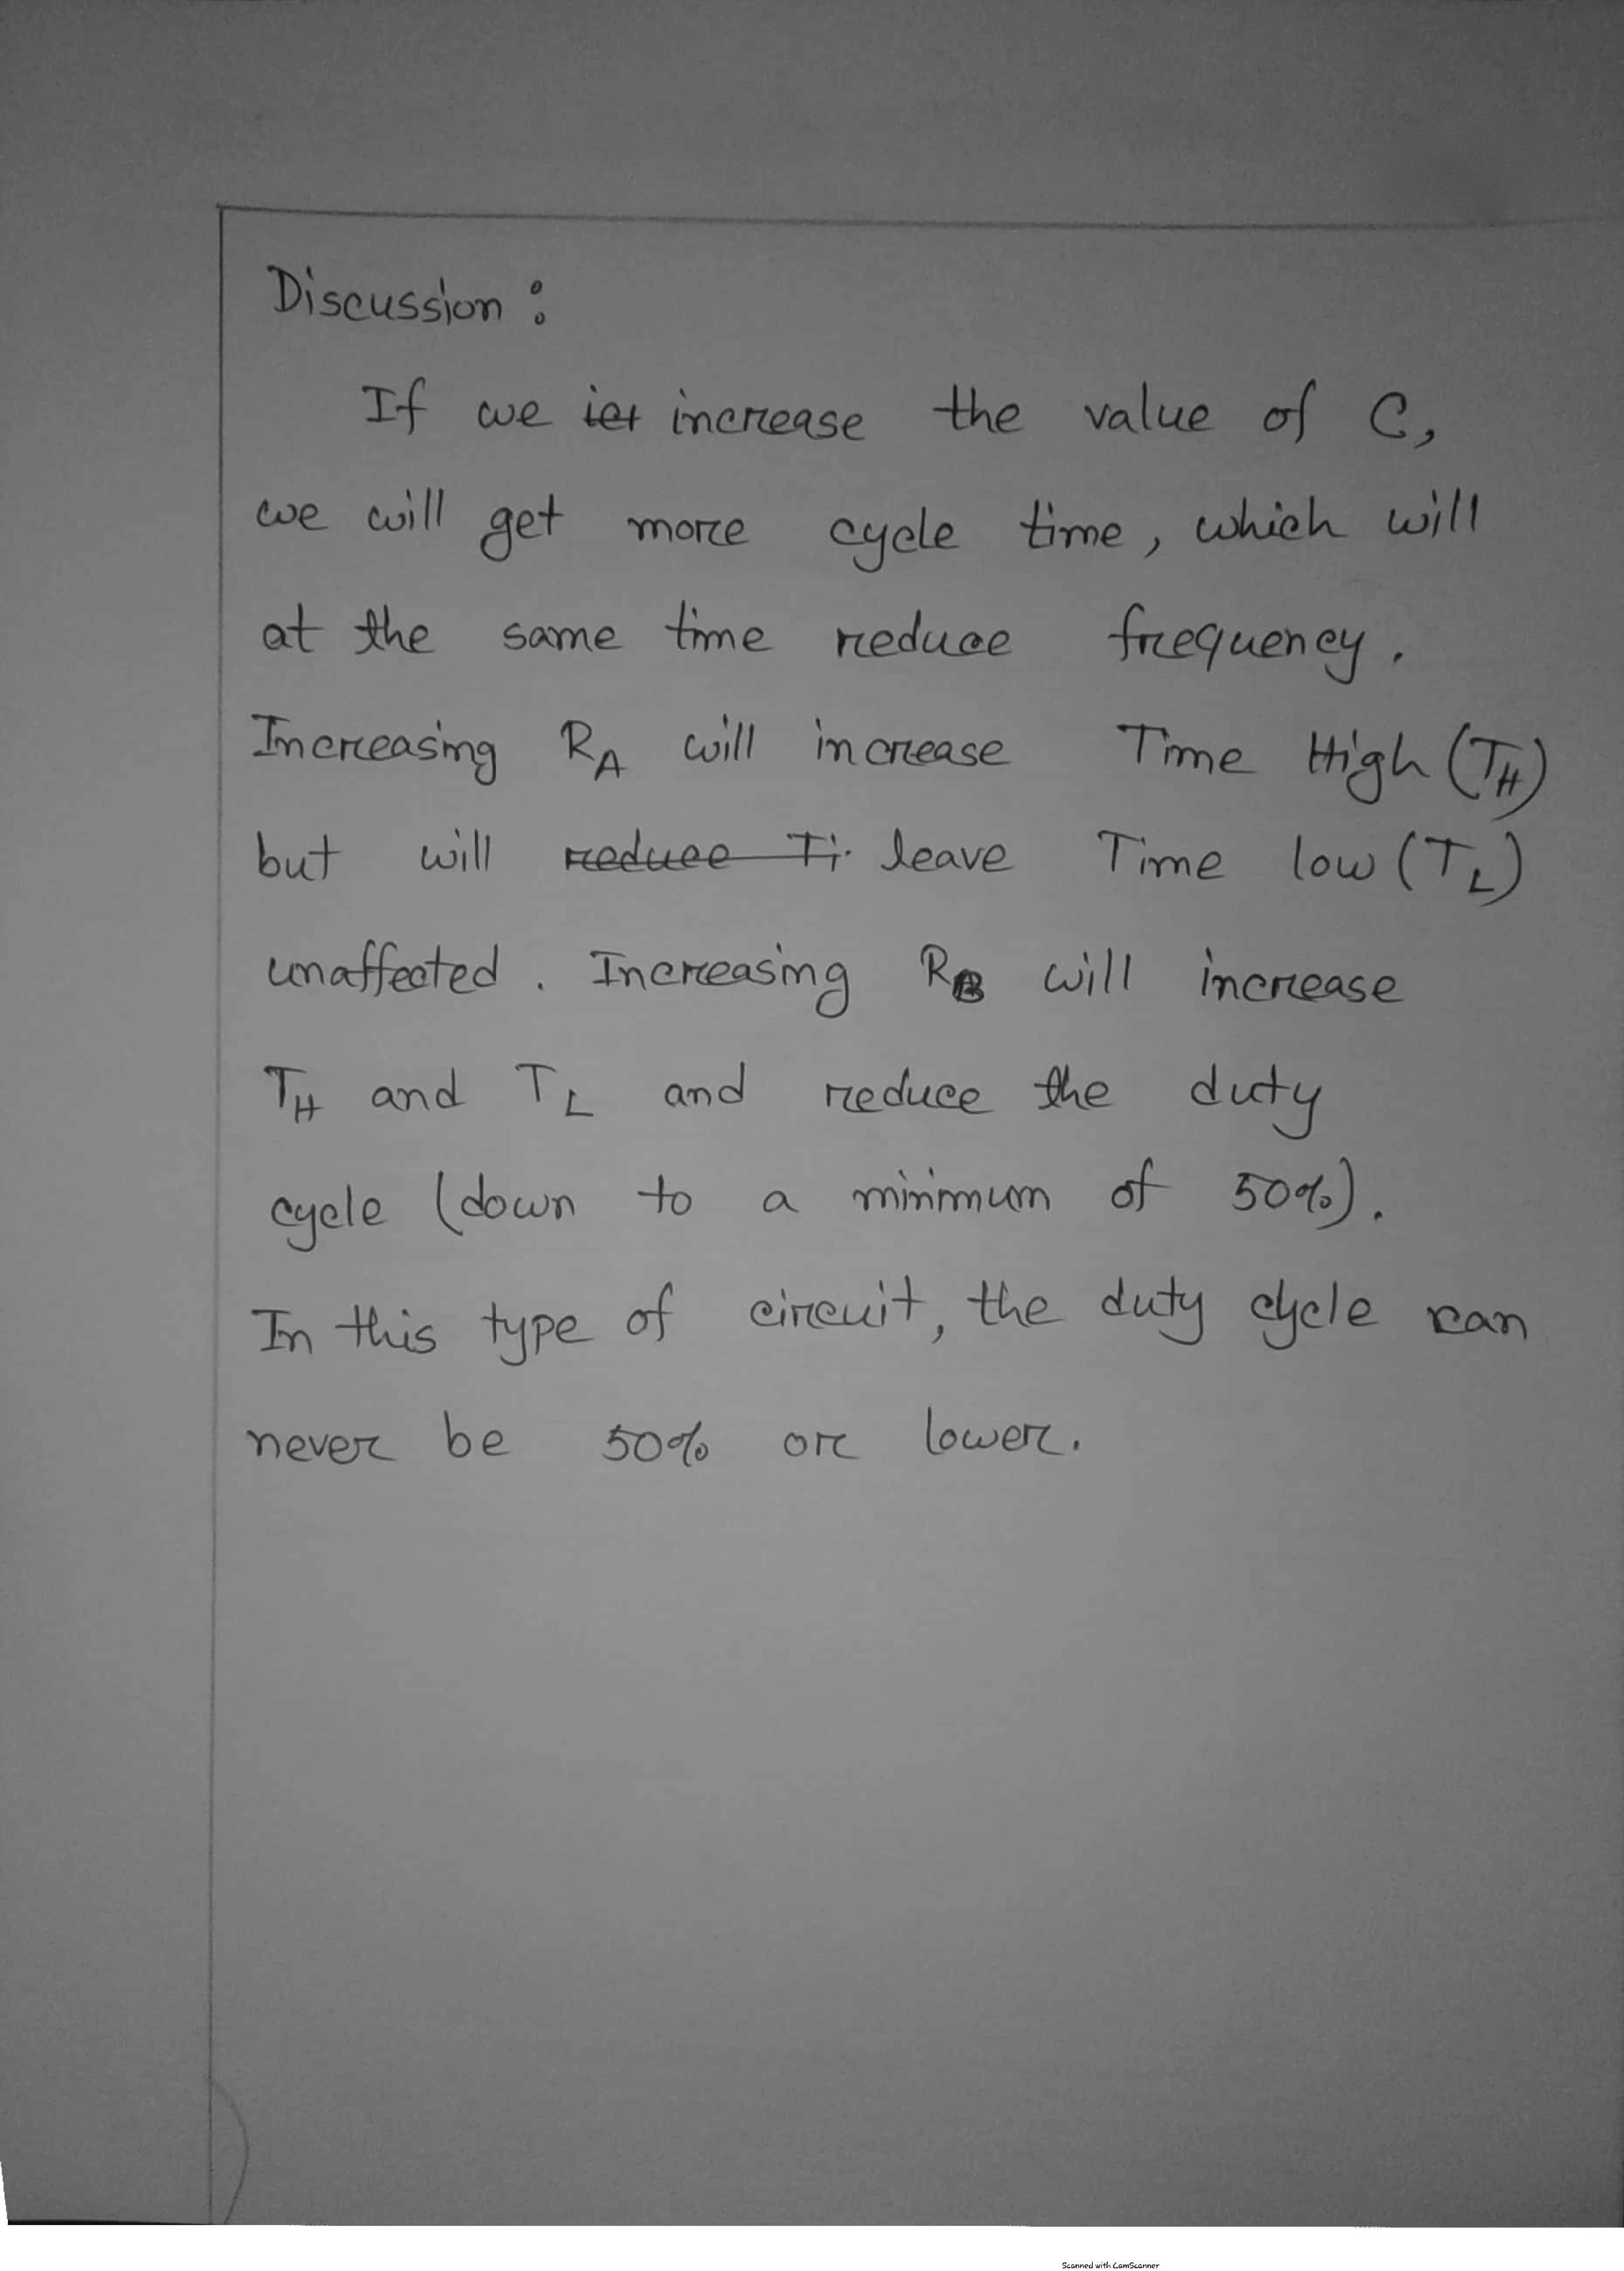 Discussion :
If we increase the value of C,
we will get more cycle time, which will
at the same time reduce frequency.
Increasing R_A will increase Time High (T_H)
but will reduce Ti leave Time low (T_L)
unaffected. Increasing R_B will increase
T_H and T_L and reduce the duty
cycle (down to a minimum of 50%).
In this type of circuit, the duty cycle can
never be 50% or lower.
Scanned with CamScanner